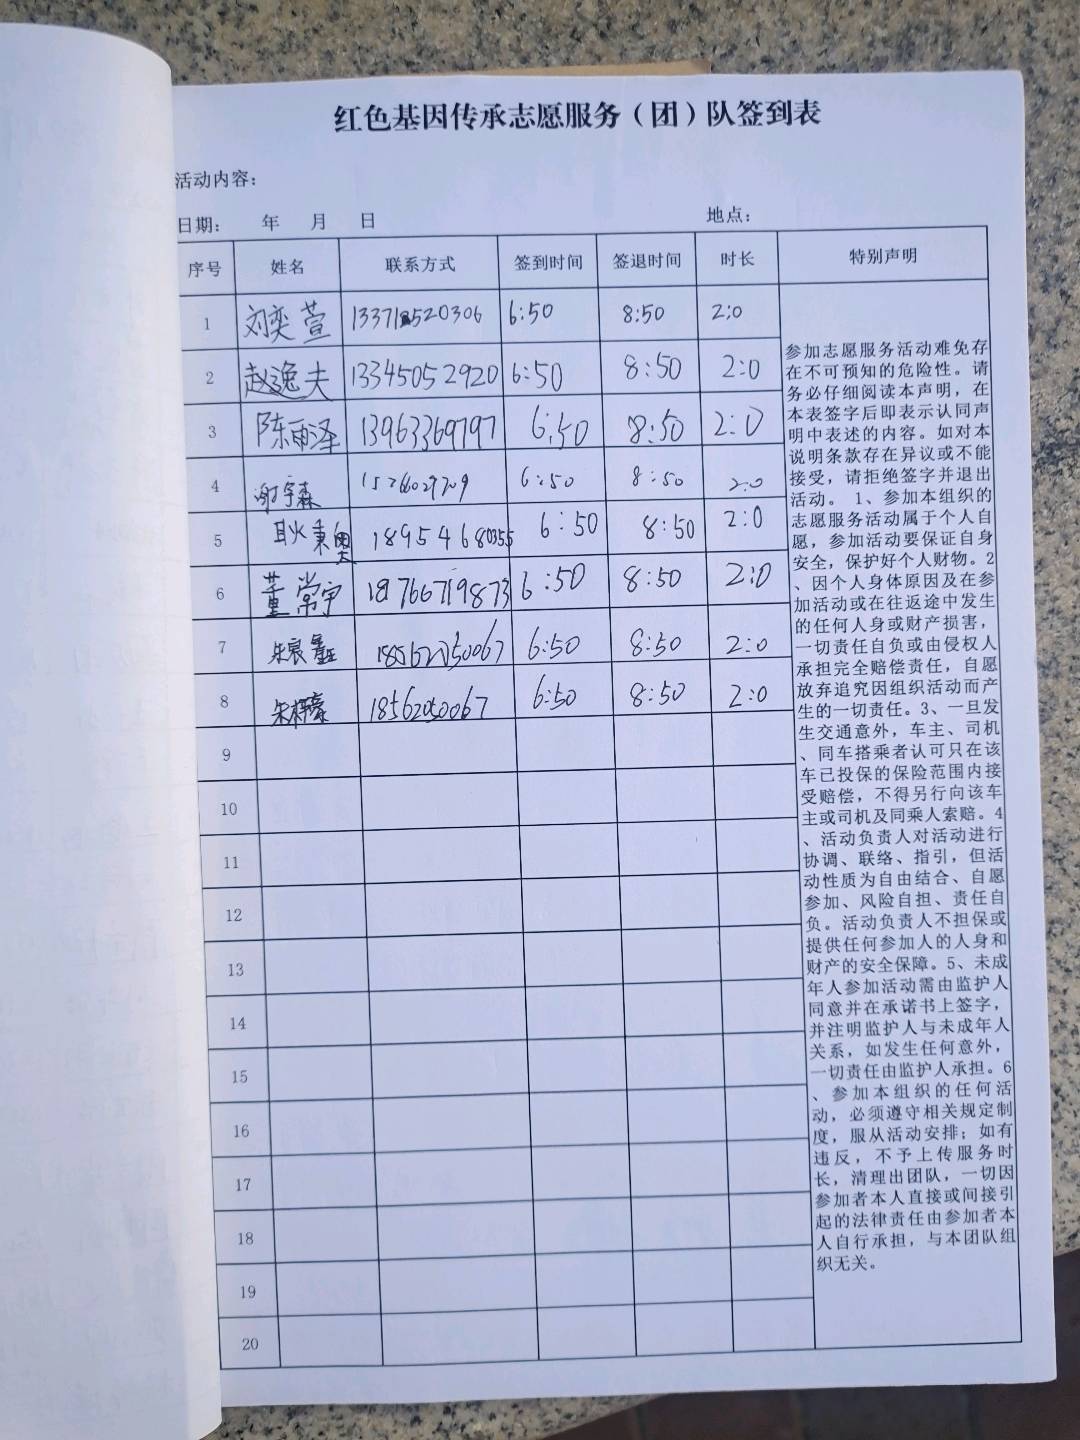 红色基因传承志愿服务（团）队签到表
活动内容：
日期： 年 月 日 地点：
序号 姓名 联系方式 签到时间 签退时间 时长 特别声明
1 刘奕萱 6:50 8:50 2:0
2 赵逸夫 13345052920 6:50 8:50 2:0
3 陈雨泽 13963369797 6:50 8:50 2:0
4 谢宇森 6:50 8:50 2:0
5 耿秉奥 18954680355 6:50 8:50 2:0
6 董常宇 18766719873 6:50 8:50 2:0
7 6:50 8:50 2:0
8 18562050067 6:50 8:50 2:0
9
10
11
12
13
14
15
16
17
18
19
20
参加志愿服务活动难免存
在不可预知的危险性。请
务必仔细阅读本声明，在
本表签字后即表示认同声
明中表述的内容。如对本
说明条款存在异议或不能
接受，请拒绝签字并退出
活动。 1、参加本组织的
志愿服务活动属于个人自
愿，参加活动要保证自身
安全，保护好个人财物。2
、因个人身体原因及在参
加活动或在往返途中发生
的任何人身或财产损害，
一切责任自负或由侵权人
承担完全赔偿责任，自愿
放弃追究因组织活动而产
生的一切责任。3、一旦发
生交通意外，车主、司机
、同车搭乘者认可只在该
车已投保的保险范围内接
受赔偿，不得另行向该车
主或司机及同乘人索赔。4
、活动负责人对活动进行
协调、联络、指引，但活
动性质为自由结合、自愿
参加、风险自担、责任自
负。活动负责人不担保或
提供任何参加人的人身和
财产的安全保障。5、未成
年人参加活动需由监护人
同意并在承诺书上签字，
并注明监护人与未成年人
关系，如发生任何意外，
一切责任由监护人承担。6
、参加本组织的任何活
动，必须遵守相关规定制
度，服从活动安排；如有
违反，不予上传服务时
长，清理出团队，一切因
参加者本人直接或间接引
起的法律责任由参加者本
人自行承担，与本团队组
织无关。